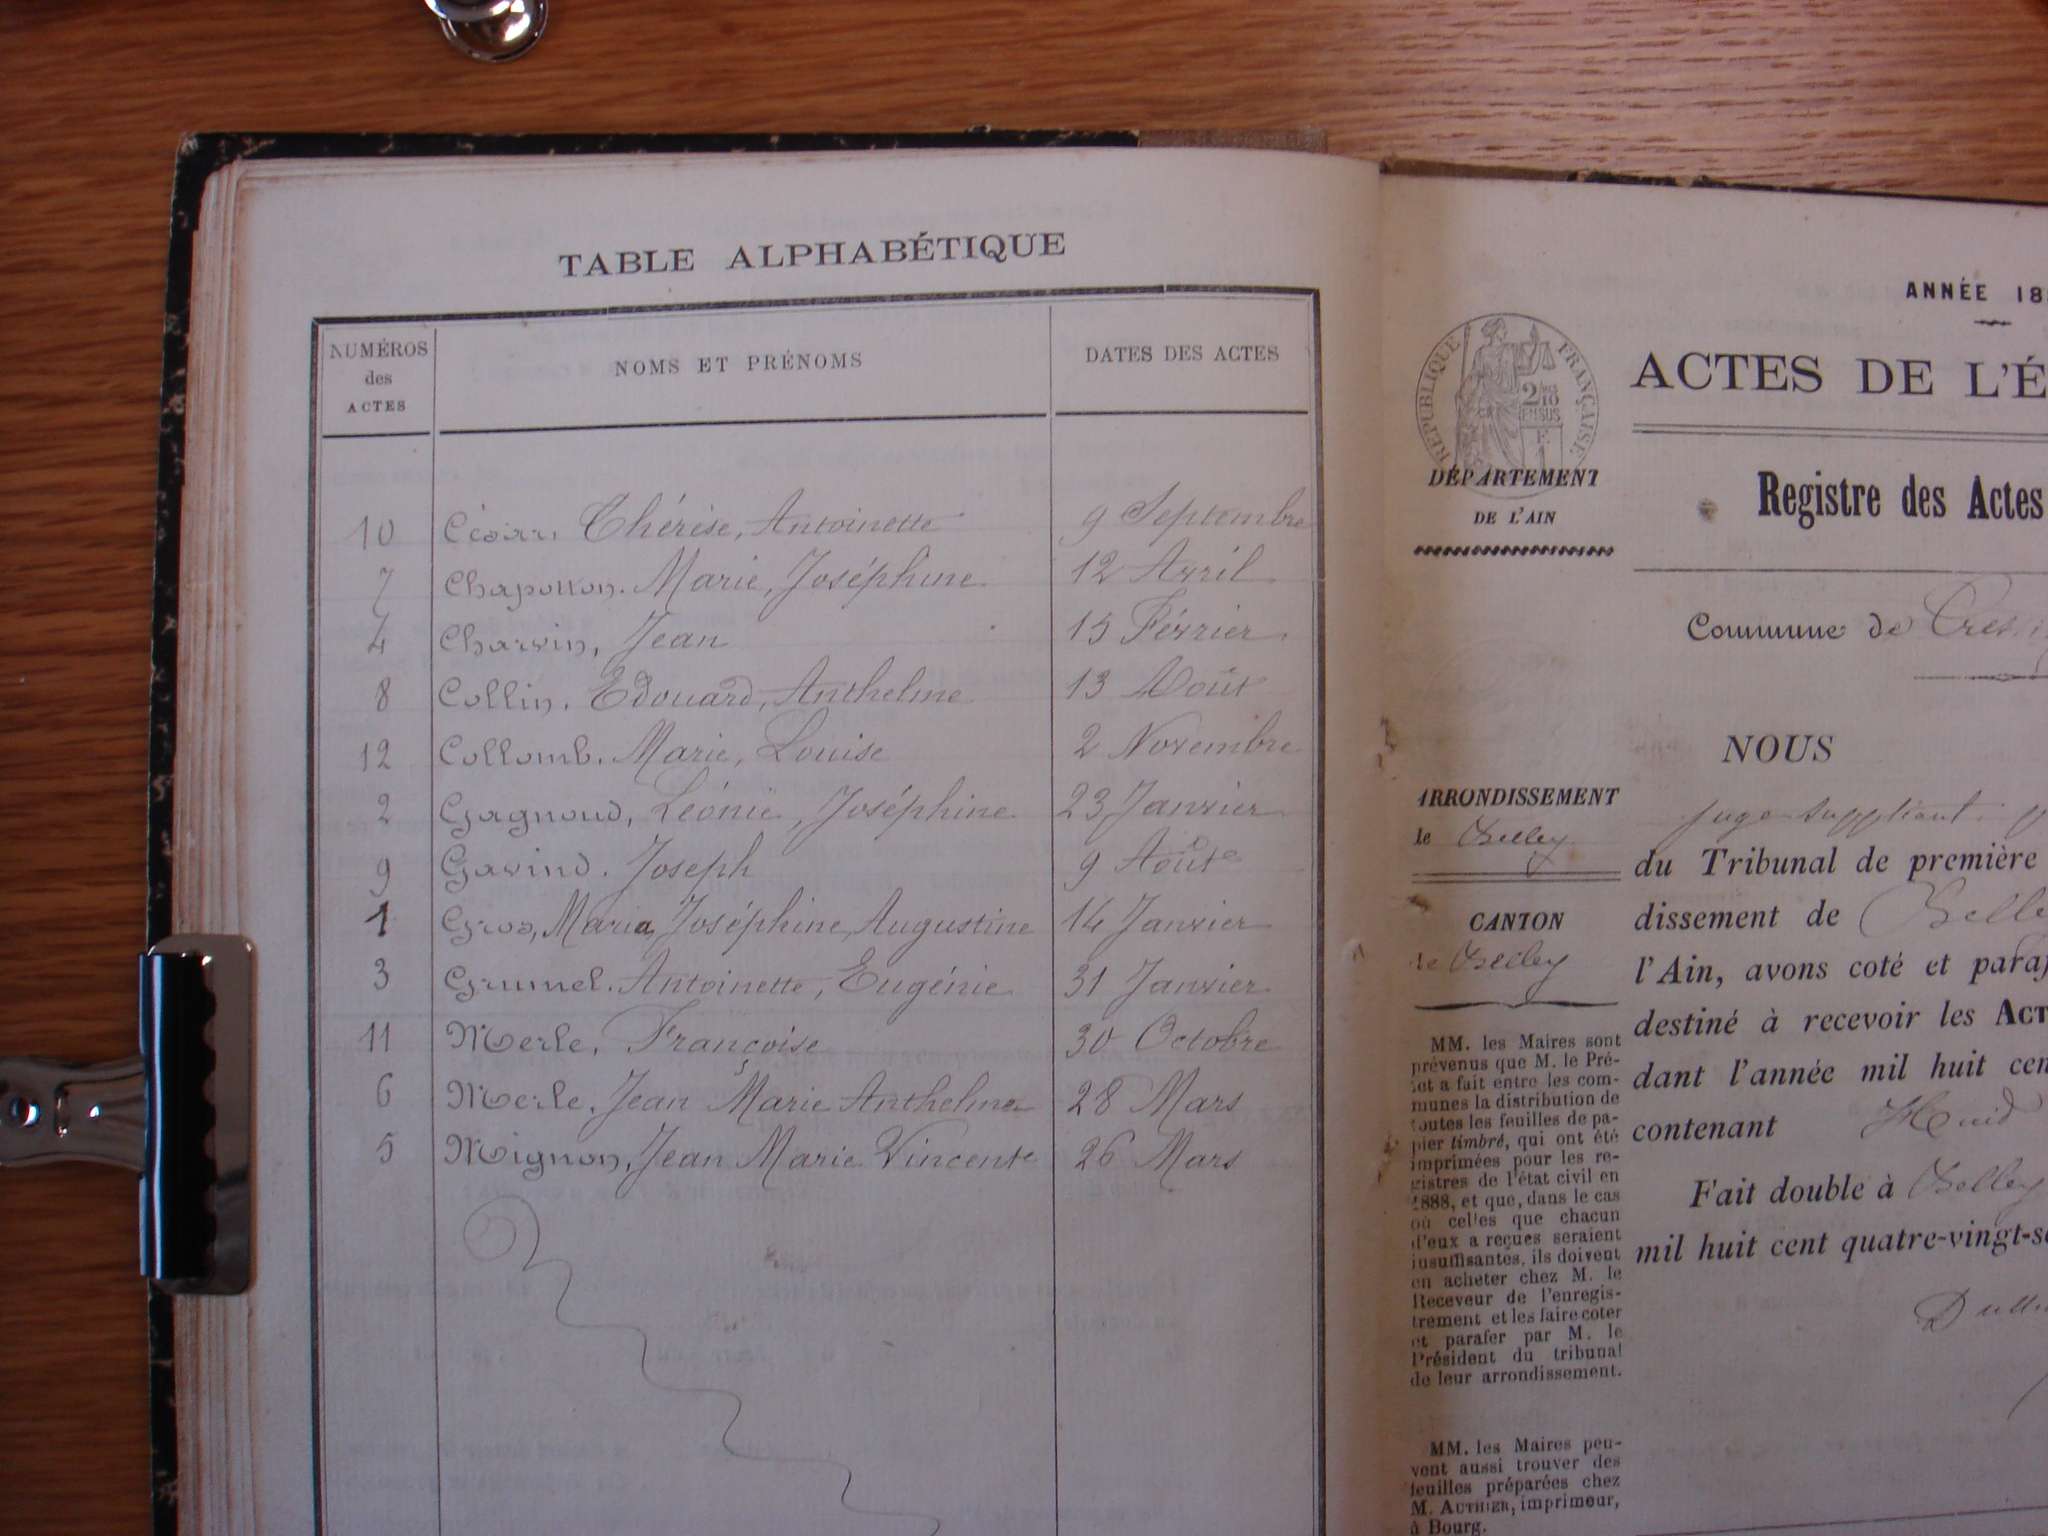 TABLE ALPHABÉTIQUE
NUMÉROS des ACTES
NOMS ET PRÉNOMS
DATES DES ACTES
10 César, Thérèse, Antoinette 9 Septembre
7 Chapollon. Marie, Joséphine 12 Avril
4 Charvin, Jean 15 Février
8 Collin, Edouard, Anthelme 13 Août
12 Collomb. Marie, Louise 2 Novembre
2 Gagnoud, Léonie, Joséphine 23 Janvier
9 Gavind. Joseph 9 Août
1 Gros, Maria, Joséphine, Augustine 14 Janvier
3 Grumel. Antoinette, Eugénie 31 Janvier
11 Merle, Françoise 30 Octobre
6 Merle, Jean Marie Anthelme 28 Mars
5 Mignon, Jean Marie Vincent 26 Mars
ANNÉE 18
ACTES DE L'É
RÉPUBLIQUE FRANÇAISE
2/10
EN SUS
DÉPARTEMENT
DE L'AIN
Registre des Actes
Commune de
NOUS
ARRONDISSEMENT
de Belley
juge suppléant
du Tribunal de première
dissement de Belle
CANTON
de Belley
l'Ain, avons coté et paraf
destiné à recevoir les ACT
dant l'année mil huit cen
contenant Huit
Fait double à Belley
mil huit cent quatre-vingt-se
MM. les Maires sont
prévenus que M. le Pré-
fet a fait entre les com-
munes la distribution de
toutes les feuilles de pa-
pier timbré, qui ont été
imprimées pour les re-
gistres de l'état civil en
1888, et que, dans le cas
où celles que chacun
d'eux a reçues seraient
insuffisantes, ils doivent
en acheter chez M. le
Receveur de l'enregis-
trement et les faire coter
et parafer par M. le
Président du tribunal
de leur arrondissement.
MM. les Maires peu-
vent aussi trouver des
feuilles préparées chez
M. AUTHIER, imprimeur,
à Bourg.